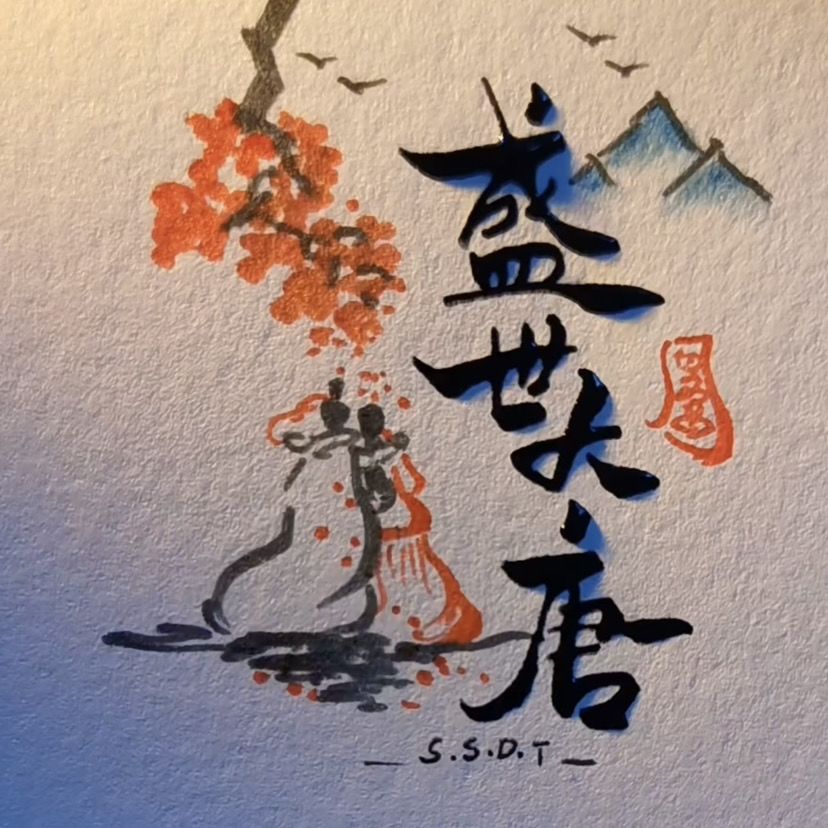 盛世大唐
S.S.D.T